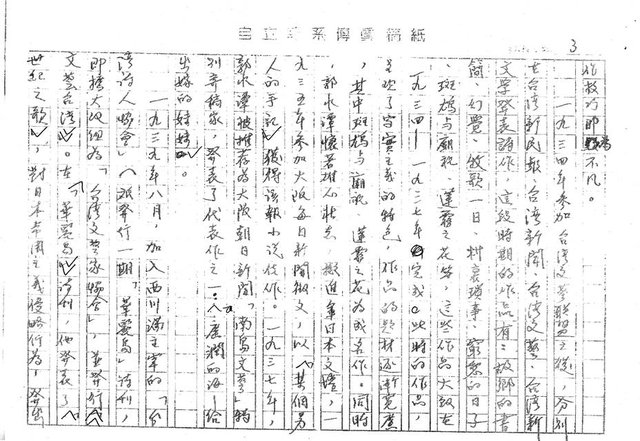 自立報系傳真稿紙
3
作技巧即不凡。
一九三四年參加台灣文藝聯盟之後,分別
在台灣新民報、台灣新聞、台灣文藝、台灣新
文學發表詩作。這段時期的作品有:故鄉的書
簡、幻覺、牧歌一日、村裏瑣事、窮愁的日子
、斑鳩與廟祝、蓮霧之花等,這些作品大致在
一九三四-一九三七年完成。此時的作品,
呈現了寫實主義的特色,作品的題材逐漸寬廣
,其中斑鳩與廟祝、蓮霧之花為成名作。同時
,郭水潭懷著雄心壯志,擬進軍日本文壇,一
九三五年參加大阪每日新聞徵文,以「某個男
人的手記」獲得該報小說佳作。一九三七年,
郭水潭被推荐為大阪朝日新聞「南島文藝」特
別寄稿家,發表了代表作之一:「廣闊的海-給
出嫁的妹妹」。
一九三九年八月,加入西川滿主宰的「台
灣詩人協會」(祇舉行一期「華麗島」詩刊,
即擴大改組為「台灣文藝家協會」,並發行「
文藝台灣」。在「華麗島」詩刊,他發表了「
世紀之歌」,對日本帝國主義侵略行為,發出